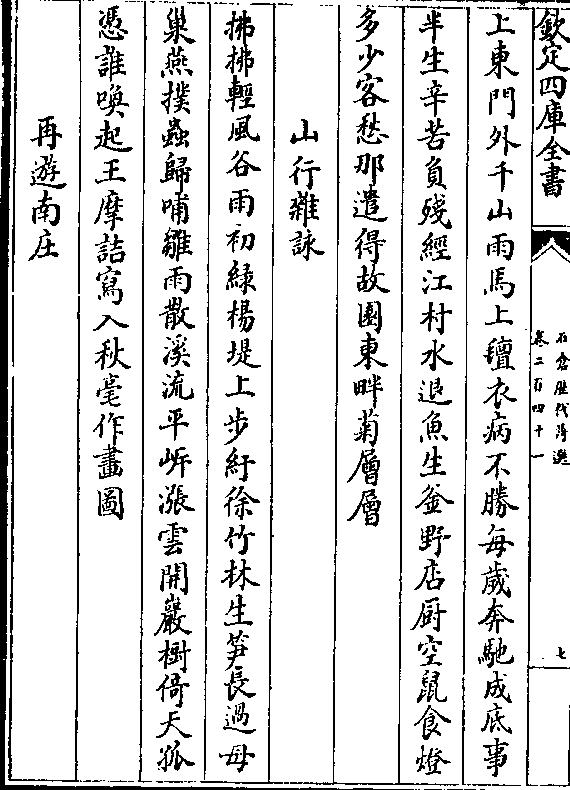 欽定四庫全書
石倉歷代詩選
卷二百四十一
七
上東門外千山雨馬上氊衣病不勝每歲奔馳成底事
半生辛苦負殘經江村水退魚生釜野店厨空鼠食燈
多少客愁那遣得故園東畔菊層層
山行雜詠
拂拂輕風谷雨初綠楊堤上步紆徐竹林生笋長過母
巢燕撲蟲歸哺雛雨散溪流平岸漲雲開巖樹倚天孤
憑誰喚起王摩詰寫入秋毫作畫圖
再遊南庄